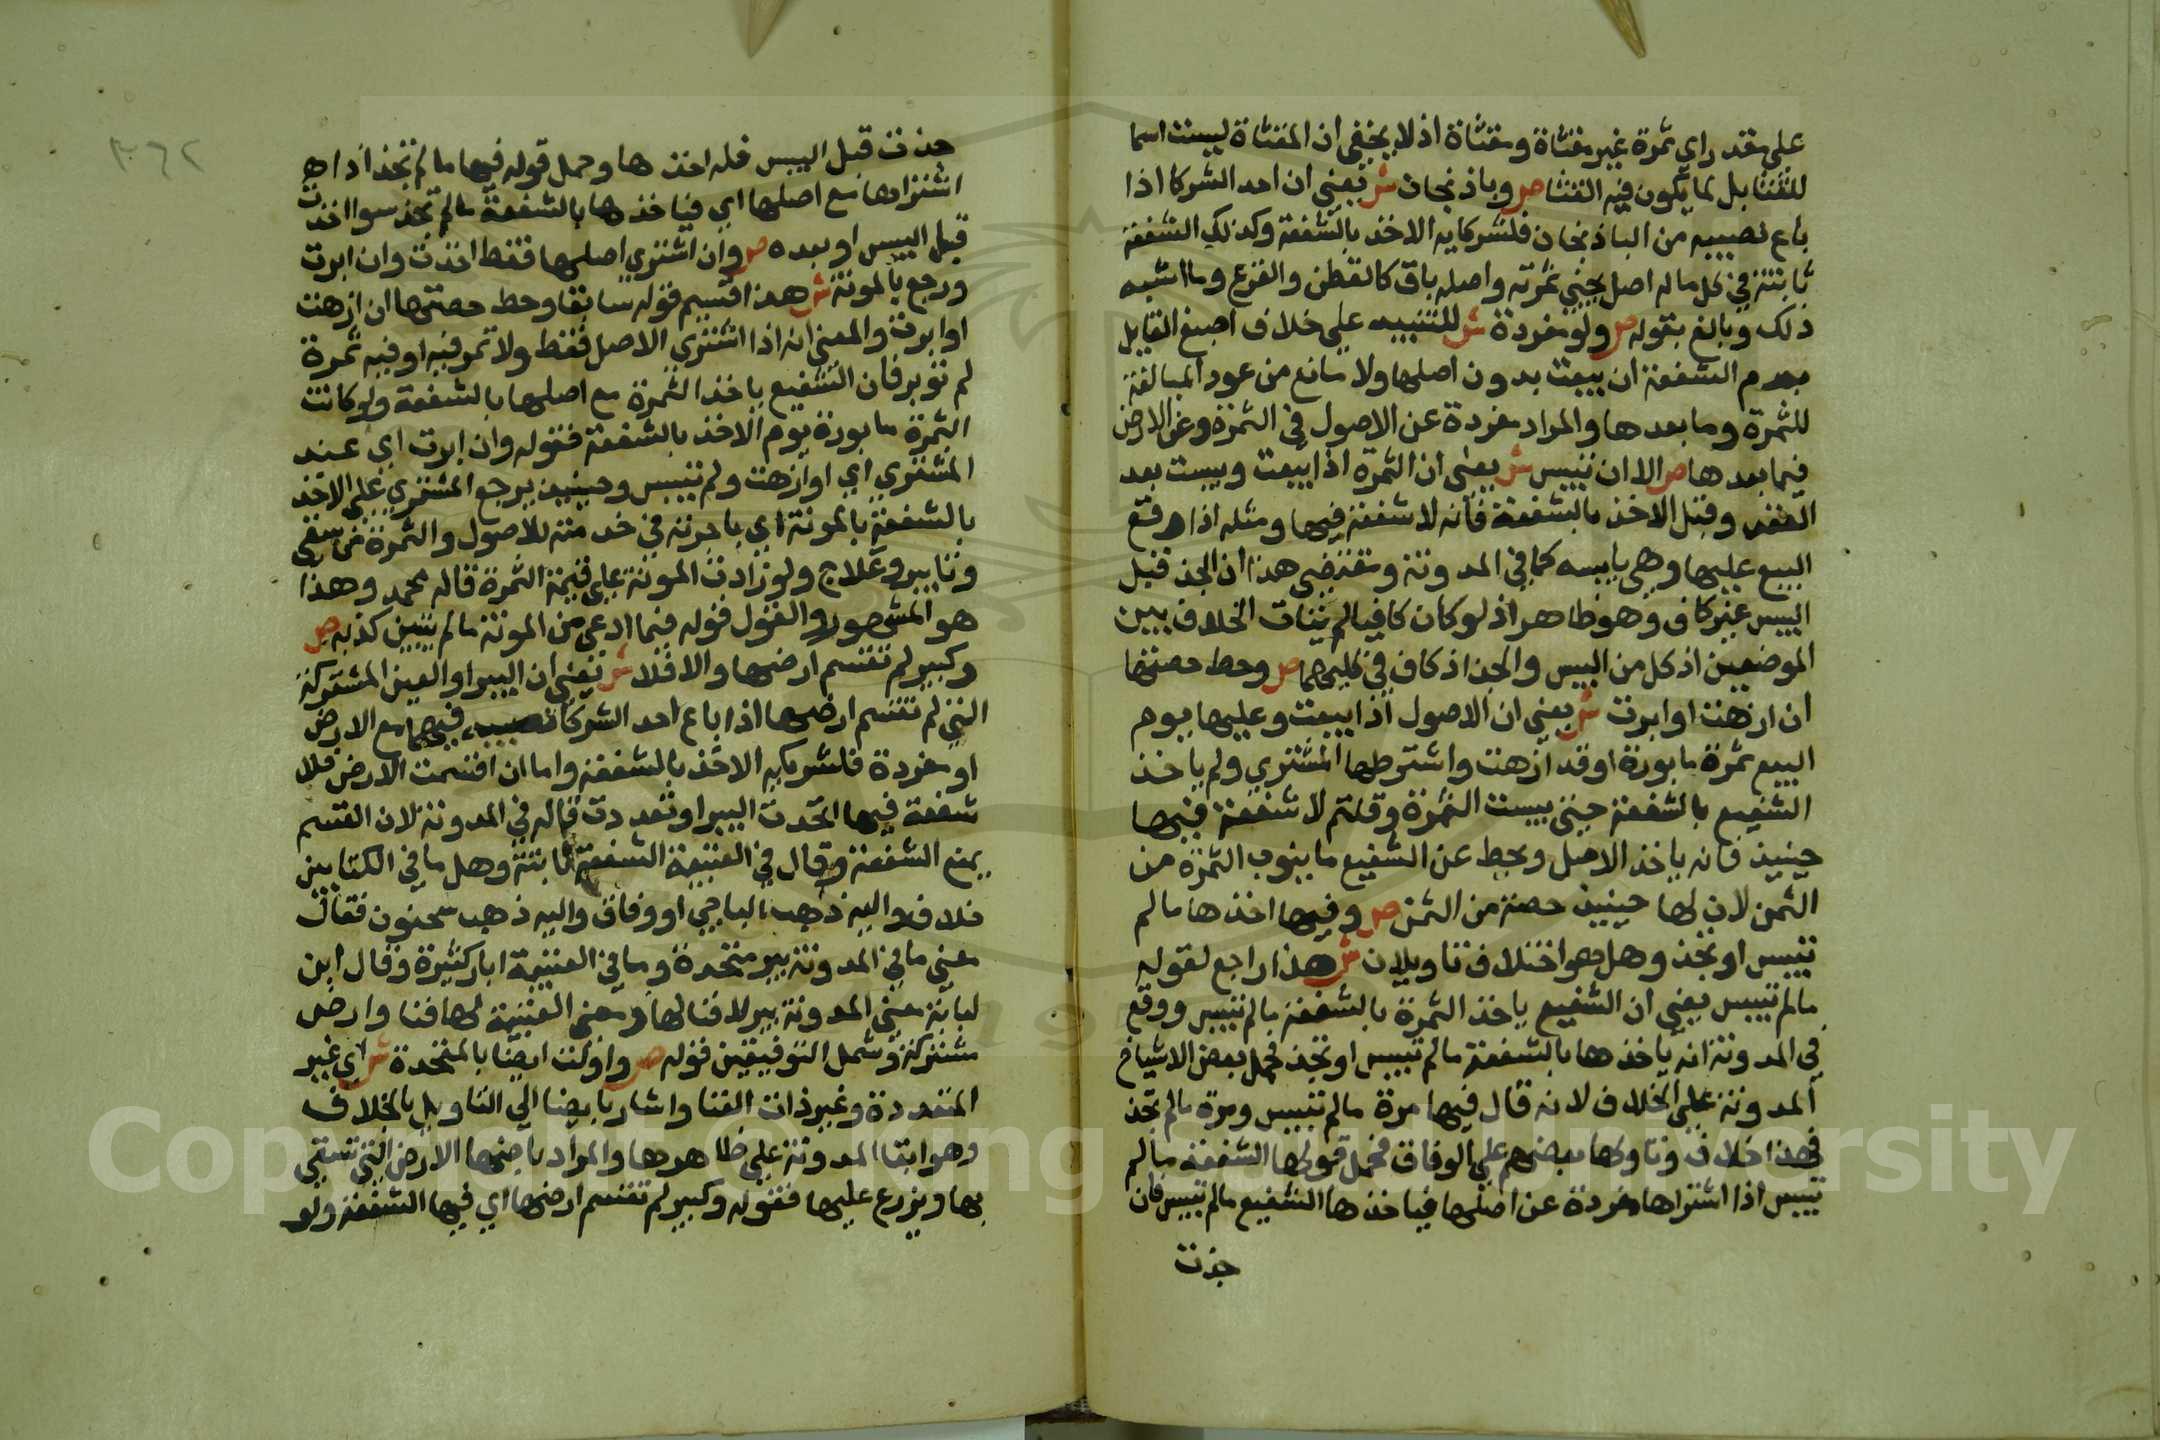 على مقدر اي ثمرة غير مقثاة ومقثاة اذ لا يخفى ان المقثاة ليست اسما
للقثا بل لما يكون فيه القثا ص وباذنجان ش يعني ان احد الشركا اذا
باع نصيبه من الباذنجان فلشركايه الاخذ بالشفعة وكذلك الشفعة
ثابتة في كل ما له اصل يجنى ثمرته واصله باق كالقطن والقرع وما اشبه
ذلك وبالغ بقوله ص ولو مفردة ش للتنبيه على خلاف اصبغ القايل
بعدم الشفعة ان بيعت بدون اصلها ولا مانع من عود المبالغة
للثمرة وما بعدها والمراد مفردة عن الاصول في الثمرة وعن الارض
فيما بعدها ص الا ان تيبس ش يعنى ان الثمرة اذا بيعت ويبست بعد
العقد وقبل الاخذ بالشفعة فانه لا شفعة فيها ومثله اذا وقع
البيع عليها وهي يابسه كما في المدونة ومقتضى هذا ان الجذ قبل
اليبس غير كاف وهو ظاهر اذ لو كان كافيا لم يتات الخلاف بين
الموضعين اذ كل من اليبس والجذ اذ كاف في كليهما ص وحط حصتها
ان ازهت او ابرت ش يعني ان الاصول اذا بيعت وعليها يوم
البيع ثمرة مابورة او قد ازهت واشترطها المشتري ولم ياخذ
الشفيع بالشفعة حتى يبست الثمرة وقلتم لا شفعة فيها
حينيذ فانه ياخذ الاصل ويحط عن الشفيع ما ينوب الثمرة من
الثمن لان لها حينيذ حصة من الثمن ص وفيها اخذها ما لم
تيبس او تجذ وهل هو اختلاف تاويلان ش هذا راجع لقوله
ما لم تيبس يعني ان الشفيع ياخذ الثمرة بالشفعة ما لم تيبس ووقع
في المدونة انه ياخذها بالشفعة ما لم تيبس او تجذ فحمل بعض الاشياخ
المدونة على الخلاف لانه قال فيها مرة ما لم تيبس ومرة ما لم تجذ
فهذا خلاف وتاولها بعضهم على الوفاق فحمل قولها الشفعة ما لم
تيبس اذا اشتراها مفردة عن اصلها فياخذها الشفيع ما لم تيبس فان
جذت
٣٦٢
جذت قبل اليبس فله اخذها وحمل قوله فيها ما لم تجذ اذا
اشتراها مع اصلها اي فياخذها بالشفعة ما لم تجذ سوا اخذت
قبل اليبس او بعده ص وان اشترى اصلها فقط اخذت وان ابرت
ورجع بالمونة ش هذا قسيم قوله سابقا وحط حصتها ان ازهت
او ابرت والمعنى انه اذا اشترى الاصل فقط ولا ثمر فيه او فيه ثمرة
لم توبر فان الشفيع ياخذ الثمرة مع اصلها بالشفعة ولو كانت
الثمرة مابورة يوم الاخذ بالشفعة فقوله وان ابرت اي عند
المشتري اي او ازهت ولم تيبس وحينيذ يرجع المشتري على الاخذ
بالشفعة بالمونة اي باجرته في خدمته للاصول والثمرة من سقي
وتابير وعلاج ولو زادت المونة على قيمة الثمرة قاله محمد وهذا
هو المشهور والقول قوله فيما ادعى من المونة ما لم يتبين كذبه ص
وكبير لم تقسم ارضها والا فلا ش يعني ان البير او العين المشتركة
التي لم تقسم ارضها اذا باع احد الشركا نصيبه فيهما مع الارض
او مفردة فلشريكه الاخذ بالشفعة واما ان اقتسمت الارض فلا
شفعة فيها اتحدت البير او تعددت قاله في المدونة لان القسم
يمنع الشفعة وقال في العتبية الشفعة ثابتة وهل ما في الكتابين
خلاف واليه ذهب الباجي او وفاق واليه ذهب سحنون فقال
معنى ما في المدونة بير متحدة وما في العتبية ابار كثيرة وقال ابن
لبابة معنى المدونة بير لا فنا لها ومعنى العتبية لها فنا وارض
مشتركة وشمل التوفيقين قوله ص واولت ايضا بالمتحدة ش اي غير
المتعددة وغير ذات الفنا واشار بايضا الى التاويل بالخلاف
وهو ابقا المدونة على ظاهرها والمراد بارضها الارض التي تسقى
بها ويزرع عليها فقوله وكبير لم تقسم ارضها اي فيها الشفعة ولو
Copyright © King Saud University